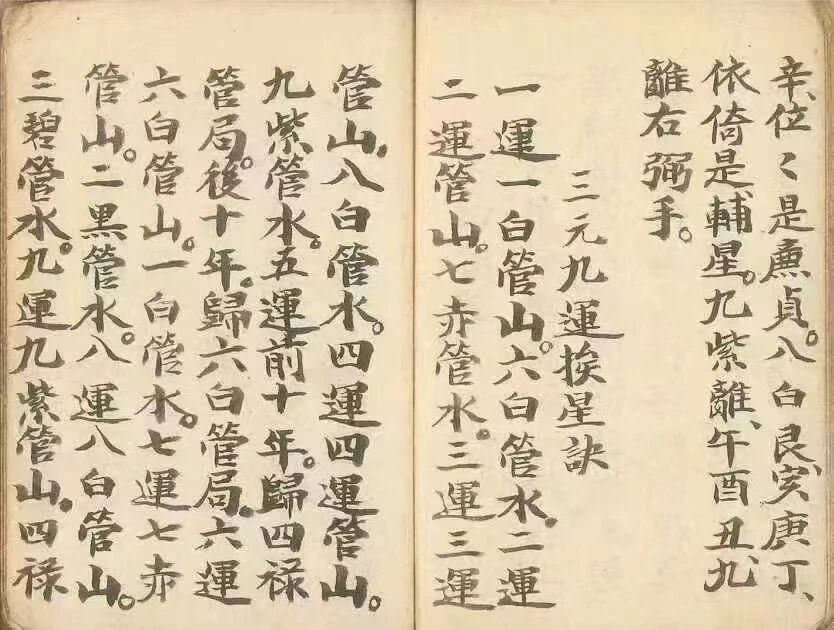 辛、位〻是廉貞。八白艮、亥庚丁、
依倚是、輔星。九紫離、午酉丑、九
離右弼手。
三元九運挨星訣
一運一白管山。六白管水。二運
二運管山。七赤管水。三運三運
管山。八白管水。四運四運管山。
九紫管水。五運前十年。歸四禄
管局。後十年。歸六白管局。六運
六白管山。一白管水。七運七赤
管山。二黑管水。八運八白管山。
三碧管水。九運九紫管山。四禄